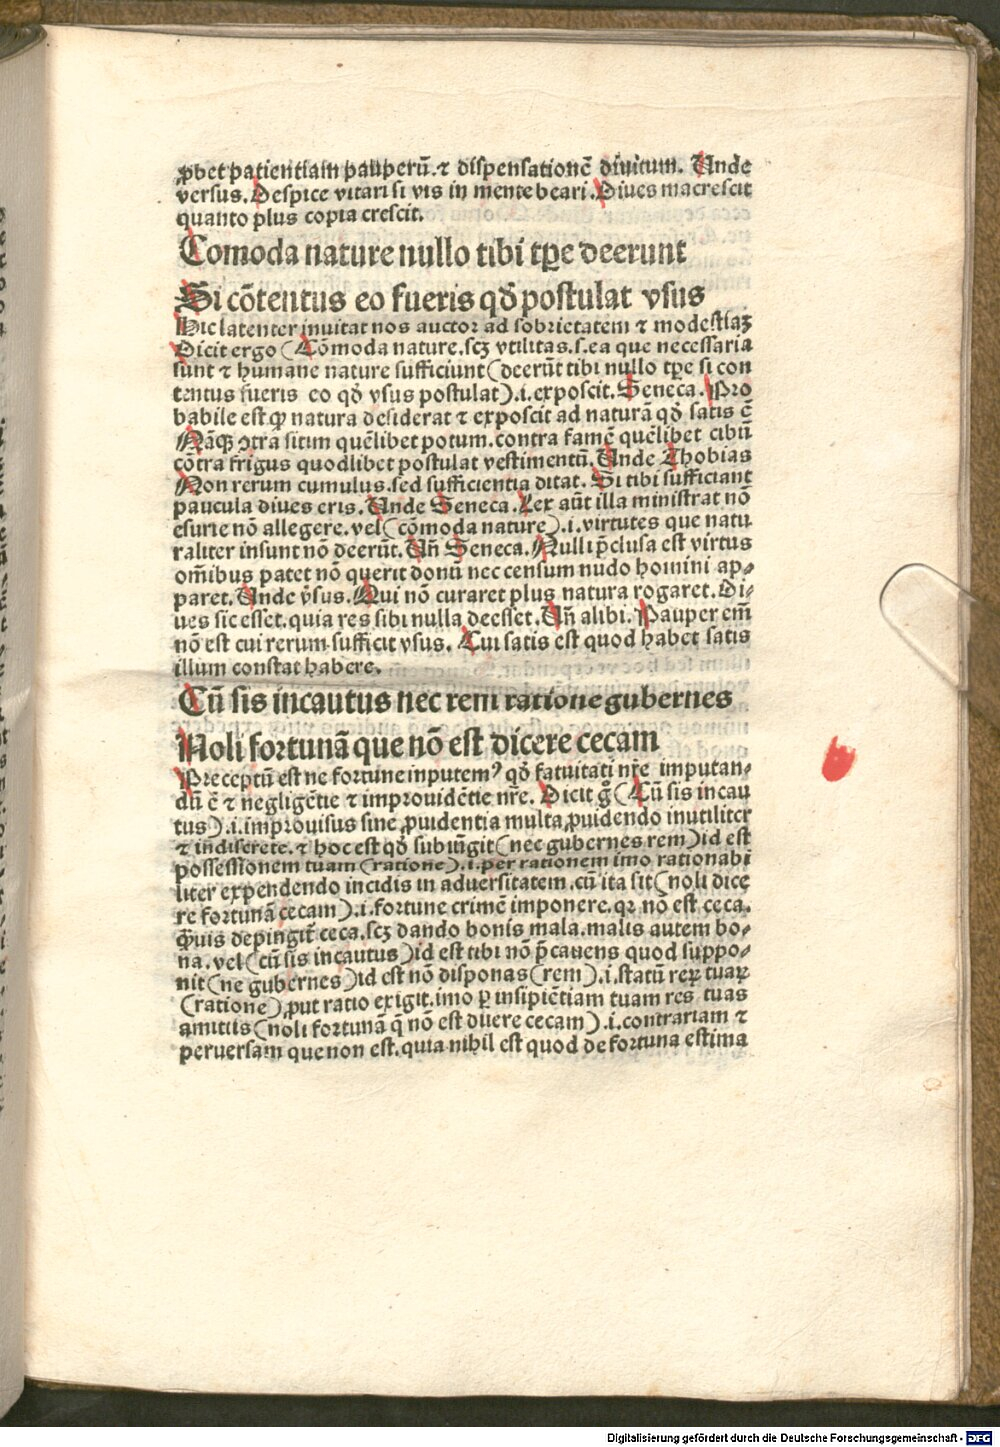 ꝓbet patientiam pauperū. ⁊ dispensationē diuitum. Unde
versus. Despice vitari si vis in mente beari. Diues macrescit
quanto plus copia crescit.
Comoda nature nullo tibi tꝑe deerunt
Si cōtentus eo fueris qḋ postulat vsus
Hic latenter inuitat nos auctor ad sobrietatem ⁊ modestiaꝫ
Dicit ergo (Cōmoda nature. scꝫ vtilitas. s. ea que necessaria
sunt ⁊ humane nature sufficiunt (deerūt tibi nullo tꝑe si con
tentus fueris eo qḋ vsus postulat). i. exposcit. Seneca. Pro
babile est ꝙ natura desiderat ⁊ exposcit ad naturā qḋ satis ē
Nāqꝫ ↄtra sitim quēlibet potum. contra famē quēlibet cibū
cōtra frigus quodlibet postulat vestimentū. Unde Thobias
Non rerum cumulus. sed sufficientia ditat. Si tibi sufficiant
paucula diues eris. Unde Seneca. Lex aūt illa ministrat nō
esurie nō allegere. vel (cōmoda nature). i. virtutes que natu
raliter insunt nō deerūt. Uñ Seneca. Nulli p̄clusa est virtus
om̄ibus patet nō querit donū nec censum nudo homini ap⸗
paret. Unde v̓sus. Qui nō curaret plus natura rogaret. Di⸗
ues sic esset. quia res sibi nulla deesset. Uñ alibi. Pauper em̄
nō est cui rerum sufficit vsus. Cui satis est quod habet satis
illum constat habere.
Cū sis incautus nec rem ratione gubernes
Noli fortunā que nō est dicere cecam
Preceptū est ne fortune inputemꝰ qḋ fatuitati nr̄e imputan⸗
dū ē ⁊ negligētie ⁊ improuidētie nr̄e. Dicit g̊ (Cū sis incau
tus). i. improuisus sine ꝓuidentia multa ꝓuidendo inutiliter
⁊ indiscrete. ⁊ hoc est qḋ subiūgit (nec gubernes rem) id est
possessionem tuam (ratione). i. per rationem imo rationabi
liter expendendo incidis in aduersitatem. cū ita sit (noli dice
re fortunā cecam). i. fortune crimē imponere. qꝛ nō est ceca.
q̄uis depingit̄ ceca. scꝫ dando bonis mala. malis autem bo⸗
na. vel (cū sis incautus) id est tibi nō p̄cauens quod suppo⸗
nit (ne gubernes) id est nō disponas (rem). i. statū reꝝ tuaꝝ
(ratione) ꝓut ratio exigit. imo ꝑ insipiētiam tuam res tuas
amittis (noli fortunā q̄ nō est dicere cecam). i. contrariam ⁊
peruersam que non est. quia nihil est quod de fortuna estima
Digitalisierung gefördert durch die Deutsche Forschungsgemeinschaft - DFG